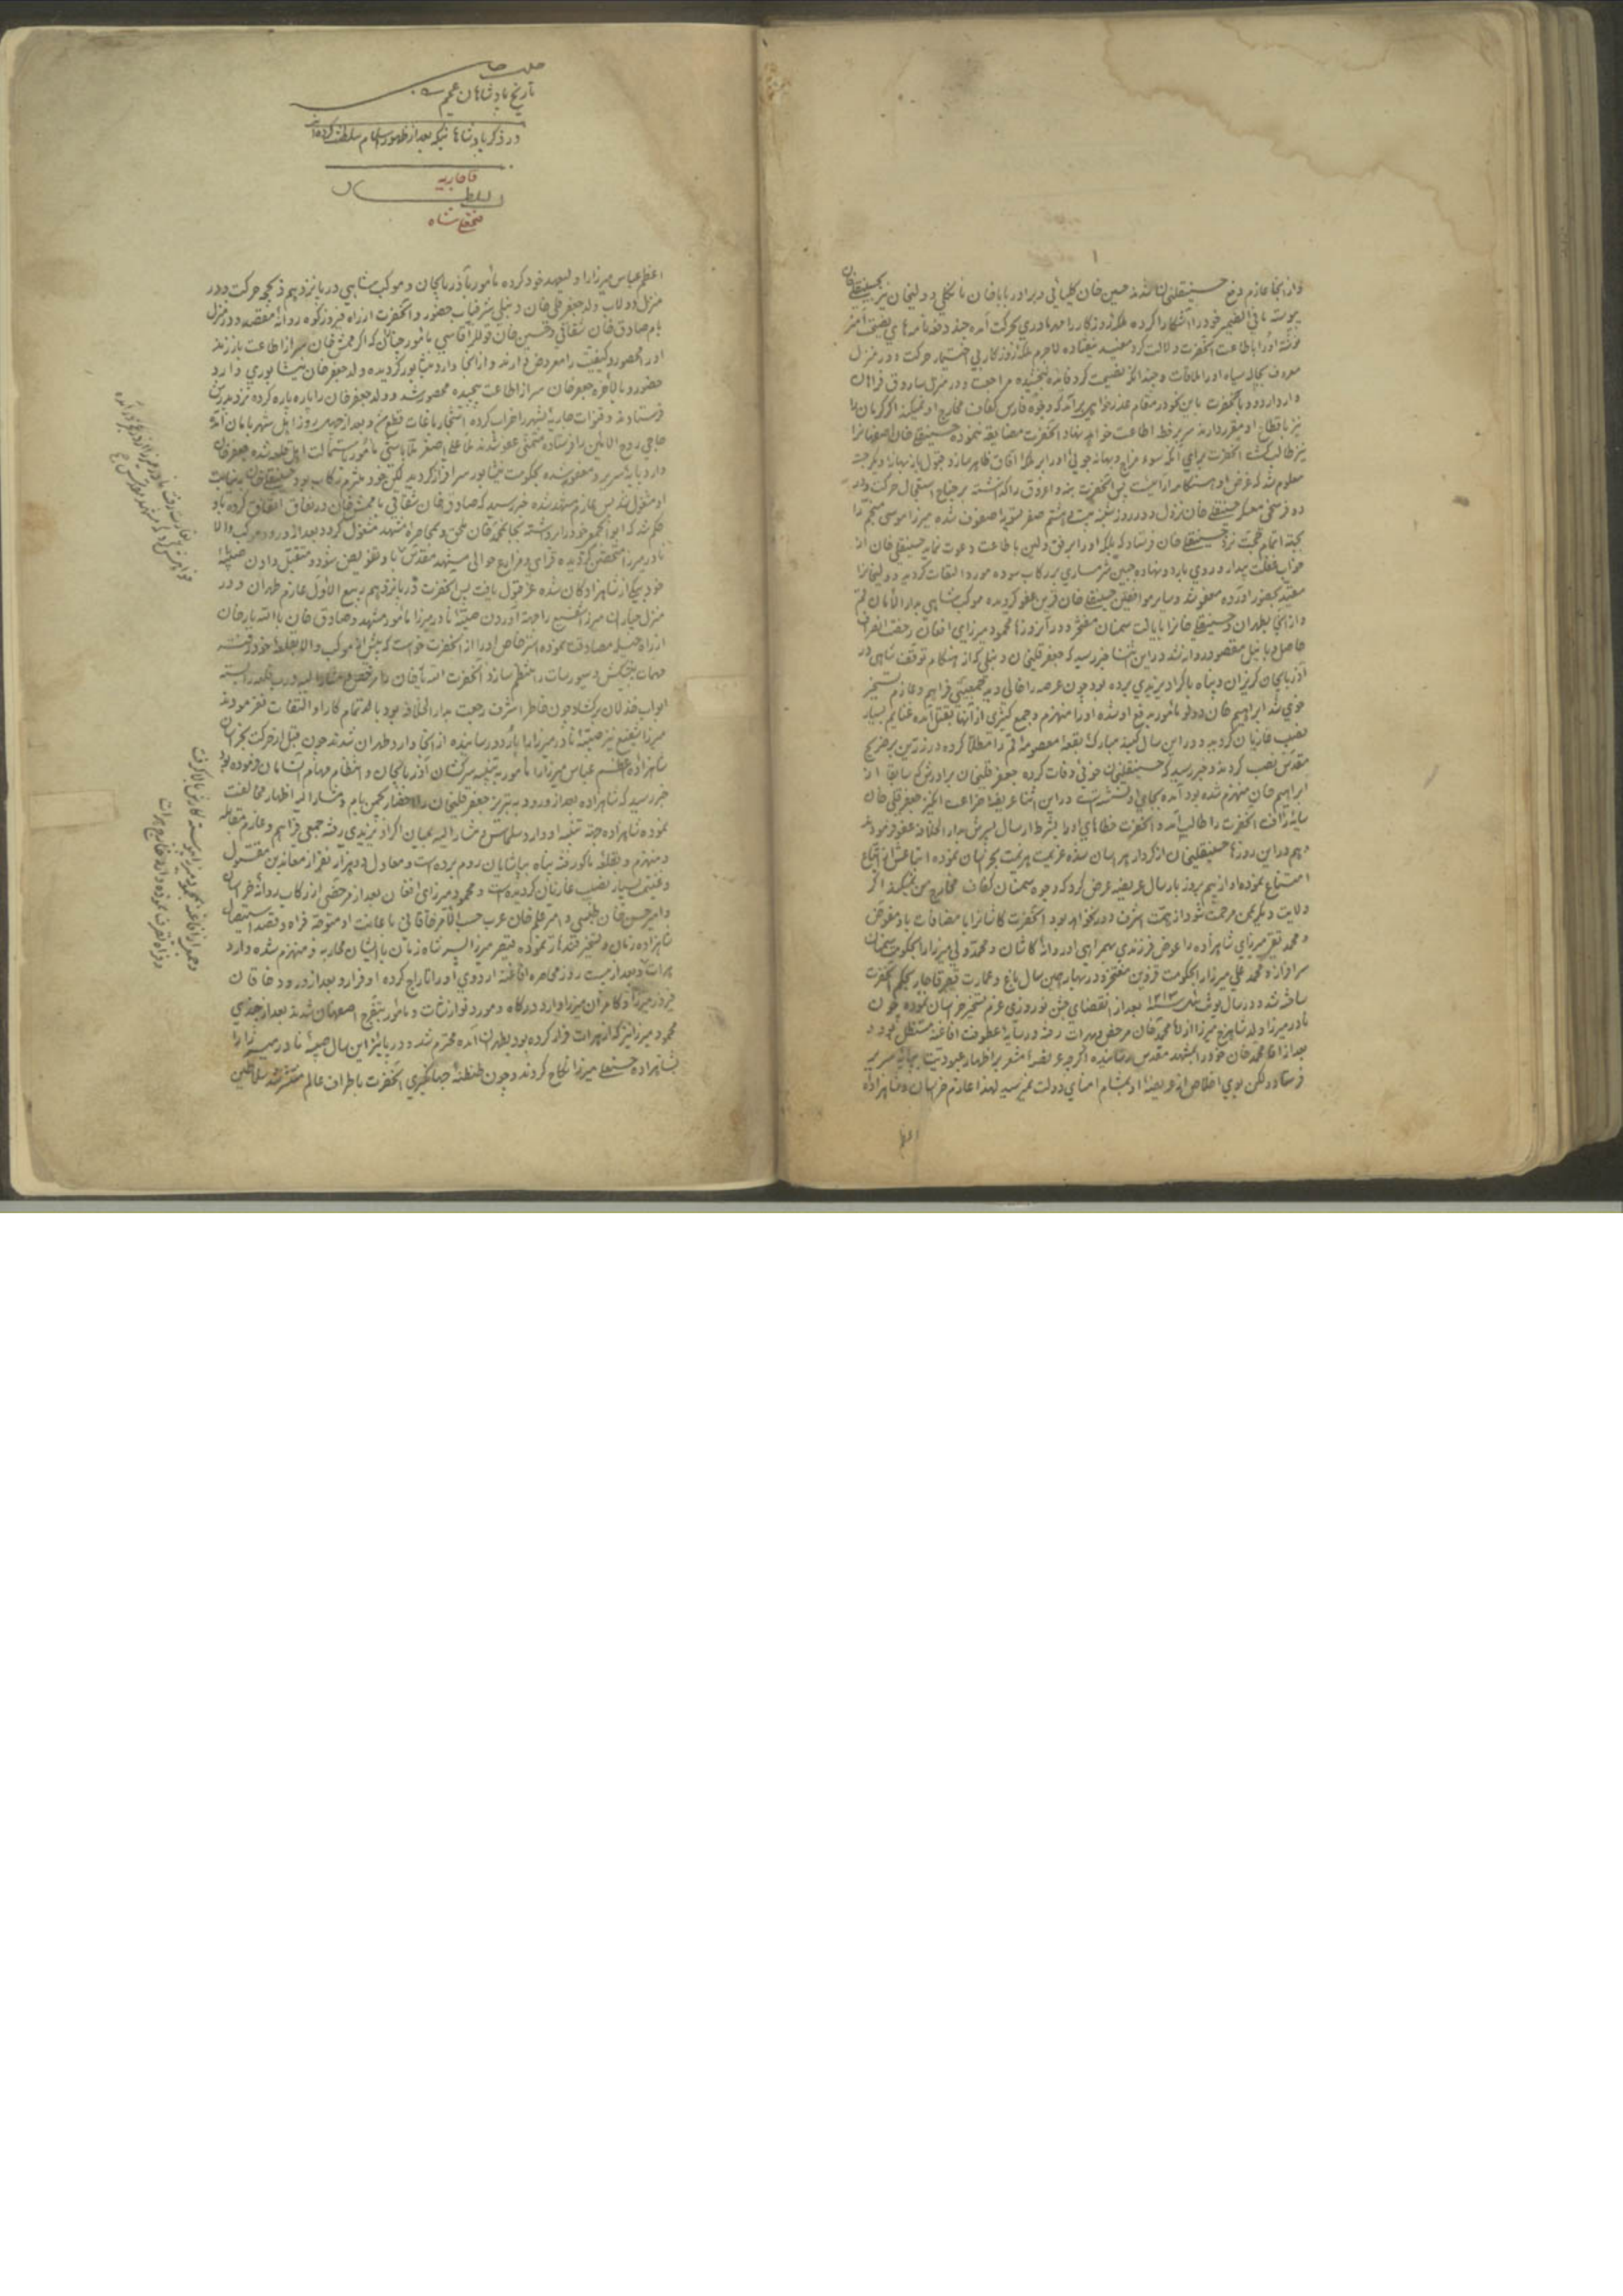 و از آنجا عازم دفع حسینقلی خان شدند حسین خان کلیائی و برادر باباخان نانکلی و ولیخان نیز بحسینقلی خان
پیوست مافی الضمیر خود را آشکارا کرده ملکه روزگار را مهد مادری بحرکت آمده چند دفعه نامه های نصیحت آمیز
نوشته او را باطاعت آنحضرت دلالت کرد مفید نیفتاده لاجرم ملکه روزگار بی اختیار حرکت و در منزل
معروف بچاله سیاه او را ملاقات و چندانکه نصیحت کرد فایده نبخشیده مراجعت و در منزل ساروق فراهان
وارد اردو و با آنحضرت باین نحو در مقام عذرخواهی برآمد که وجوه فارس کفاف مخارج او نمیکند اگر کرمان را
نیز باقطاع او مقرر دارند سر بر خط اطاعت خواهد نهاد آنحضرت مضایقه ننموده حسینقلی خان اصفهان را
نیز طالب گشت آنحضرت برای آنکه سوء مزاج و بهانه جوئی او را بر ملکه آفاق ظاهر سازد قبول
معلوم شد که غرض او پس آنحضرت بنه و اغروق را گذاشته بر جناح استعجال حرکت و در
ده فرسخی معسکر حسینقلی خان نزول و در روز شنبه بیست و هشتم صفر متوجه صفوف شده میرزا موسی منجم را
بجهة اتمام حجت نزد حسینقلی خان فرستاد که بلکه او را برفق و لین باطاعت دعوت نماید حسینقلی خان از
خواب غفلت بیدار و روی بارد و نهاده جبین شرمساری بر رکاب سوده مورد التفات گردید و ولیخان را
مقید بحضور آورده معفو شد و سایر موافقین حسینقلی خان قرین عفو گردیده موکب شاهی بدار الأمان قم
و از آنجا بطهران و حسینقلی خان را بایالت سمنان مفتخر و در آنروزها محمود میرزای افغان رخصت انصراف
حاصل و با نیل مقصود روانه شد در این اثنا خبر رسید که جعفرقلیخان دنبلی که از هنگام توقف شاهی در
آذربایجان گریزان و پناه باکراد یزیدی برده بود چون عرصه را خالی دید جمعیتی فراهم و عازم تسخیر
خوی شد ابراهیم خان دولو مأمور بدفع او شده او را منهزم و جمع کثیری از آنها بقتل آمده غنایم بسیار
نصیب غازیان گردید و در این سال گنبد مبارک بقعه معصومه قم را مطلا کرده در زرین بر ضریح
مقدس نصب کردند و خبر رسید که حسینقلیخان خوئی وفات کرده جعفرقلیخان برادرش که سابقا از
ابراهیم خان منهزم شده بود آمده بجای او نشسته است در این اثنا عریضه ضراعت انگیز جعفرقلی خان
سایه رأفت آنحضرت را طالب آمد و آنحضرت خطاهای او را بشرط ارسال پسرش بدار الخلافه عفو فرمودند
و هم در این روزها حسینقلیخان از کردار پریشان شده عزیمت هزیمت بخراسان نموده اتباعش از اتباع
امتناع نموده او از بیم بروز بارسال عریضه عرض کرد که وجوه سمنان کفاف مخارج من نمیکند اگر
ولایت دیگر بمن مرحمت شود از همت اشرف دور نخواهد بود آنحضرت کاشان را با مضافات باو مفوض
و محمد تقی میرزای شاهزاده را عوض فرزندی بهمراهی او روانه کاشان و محمد ولی میرزا را بحکومت سمنان
سرافراز و محمد علی میرزا را بحکومت قزوین مفتخر و در بهار همین سال باغ و عمارت قصر قاجار بحکم آنحضرت
ساخته شد و در سال یونت ئیل سنه ۱۲۱۳ بعد از انقضای جشن نوروزی عزم تسخیر خراسان نموده چون
نادر میرزا ولد شاهرخ میرزا از آقا محمد خان مرخص و بهرات رفته و در سایه عطوفت افاغنه مستظل بود و
بعد از آقا محمد خان خود را بمشهد مقدس رسانیده اگرچه عریضه مشعر بر اظهار عبودیت بپایه سریر
فرستاد ولکن بوی اخلاص از عریضه او بمشام امنای دولت نمیرسید لهذا عازم خراسان و شاهزاده
اعظم
تاریخ پادشاهان عجم
در ذکر پادشاهانیکه بعد از ظهور اسلام سلطنت کرده اند
قاجاریه
السلطان
فتحعلیشاه
اعظم عباس میرزا را ولیعهد خود کرده مأمور بآذربایجان و موکب شاهی در پانزدهم ذیحجه حرکت و در
منزل دولاب ولد جعفرقلی خان دنبلی شرفیاب حضور و آنحضرت از راه فیروزکوه روانه مقصد و در منزل
بام صادق خان شقاقی و حسین خان قوللر آقاسی مأمور که اگر ممش خان سر از اطاعت باز زند
او را محصور و کیفیت را معروض دارند و از آنجا وارد نیشابور گردیده ولد جعفرخان نیشابوری وارد
حضور و بالأخره جعفرخان سر از اطاعت پیچیده محصور شد و ولد جعفرخان را پاره پاره کرده نزد پدرش
فرستادند و قنوات جاریه شهر را خراب کرده اشجار باغات قطع و بعد از چهل روز اهل شهر بامان آمده
حاجی روح الامین را فرستاده متمنی عفو شدند ملا علی اصغر ملاباشی مأمور باستمالت اهل قلعه شده جعفرخان
وارد پایه سریر و معفو شده بحکومت نیشابور سرافراز گردید لکن خود ملتزم رکاب بود حسینقلی خان بنیابت
او مشغول شد پس عازم مشهد شده خبر رسید که صادق خان شقاقی با ممش خان در نفاق اتفاق کرده باو
حکم شد که ابوالجمع خود را برداشته بجانب محمد خان ملحق و بمحاصره مشهد مشغول گردد بعد از ورود موکب والا
نادر میرزا متحصن گردیده قرای و مزارع حوالی مشهد مقدس باو تفویض شود و متقبل دادن صبیه
خود بیکی از شاهزادگان شده عز قبول یافت پس آنحضرت در پانزدهم ربیع الأول عازم طهران و در
منزل چناران میرزا شفیع را جهة آوردن صبیه نادر میرزا مأمور مشهد و صادق خان با الله یار خان
از راه حیله مصادقت نموده استرخاص او را از آنحضرت خواست که پیش از موکب والا بقلعه خود رفته
مهمات پیشکش و سیورسات را منظم سازد آنحضرت الله یار خان را مرخص و مشارالیه درب قلعه را بسته
ابواب خذلان برگشاد چون خاطر اشرف رجعت بدار الخلافه بود باهتمام کار او التفات نفرمودند
میرزا شفیع نیز صبیه نادر میرزا را باردو رسانیده از آنجا وارد طهران شدند چون قبل از حرکت بخراسان
شاهزاده اعظم عباس میرزا را مأمور به تنبیه سرکشان آذربایجان و انتظام مهام آنسامان فرموده بود
خبر رسید که شاهزاده بعد از ورود به تبریز جعفرقلیخان را احضار بحکم پیام و مشارالیه اظهار مخالفت
نموده شاهزاده جهة تنبیه او وارد سلماس و مشارالیه بمیان اکراد یزیدی رفته جمعی فراهم و عازم مقابله
و منهزم و بقلعه ماکو رفته پناه بپاشایان روم برده است و معادل دو هزار نفر از معاندین مقتول
و غنیمت بسیار نصیب غازیان گردیده است و محمود میرزای افغان بعد از مرخصی از رکاب روانه خراسان
و امیر حسن خان طبسی و امیر علم خان عرب حسب الأمر خاقانی باعانت او متوجه فراه و بقصد استیصال
شاهزاده زمان و تسخیر قندهار نموده قیصر میرزا پسر شاه زمان با ایشان محاربه و منهزم شده وارد
هرات و بعد از بیست روز محاصره افاغنه اردوی او را تاراج کرده او فرار و بعد از ورود خاقان
فیروز میرزا و کامران میرزا وارد درگاه و مورد نوازشات و مأمور بتفرج اصفهان شدند بعد از چندی
محمود میرزا نیز که از هرات فرار کرده بود بطهران آمده محترم شد و در پائیز این سال صبیه نادر میرزا را
بشاهزاده حسینعلی میرزا نکاح کردند و چون طنطنه جهانگیری آنحضرت باطراف عالم منتشر شد سلاطین